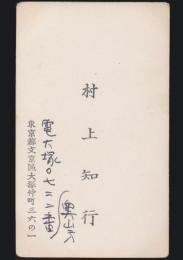 村上知行
(奥山方
電大塚〇七二二番
東京都文京区大塚仲町三六の一